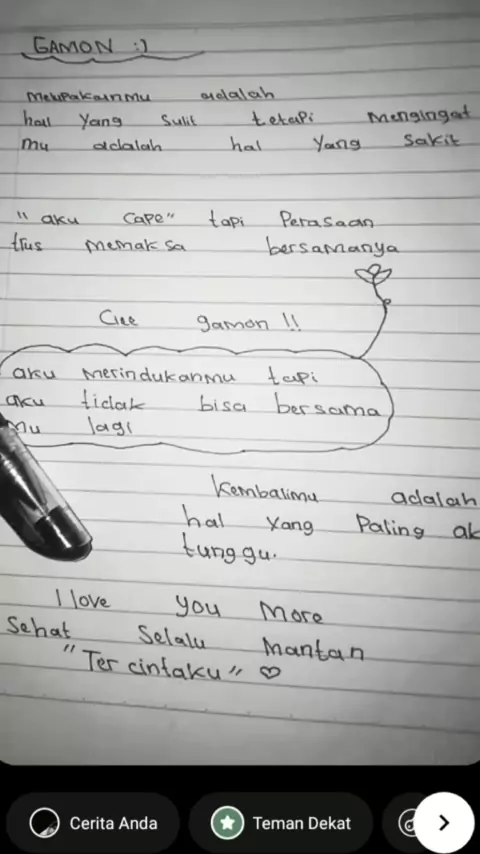 GAMON :)
Melupakanmu adalah
hal yang sulit tetapi Mengingat
mu adalah hal yang sakit
"aku cape" tapi Perasaan
trus memaksa bersamanya
Ciee gamon !!
aku merindukanmu tapi
aku tidak bisa bersama
mu lagi
Kembalimu adalah
hal yang Paling ak
tunggu.
I love you More
Sehat Selalu Mantan
"Ter cintaku" ♡
Cerita Anda
Teman Dekat